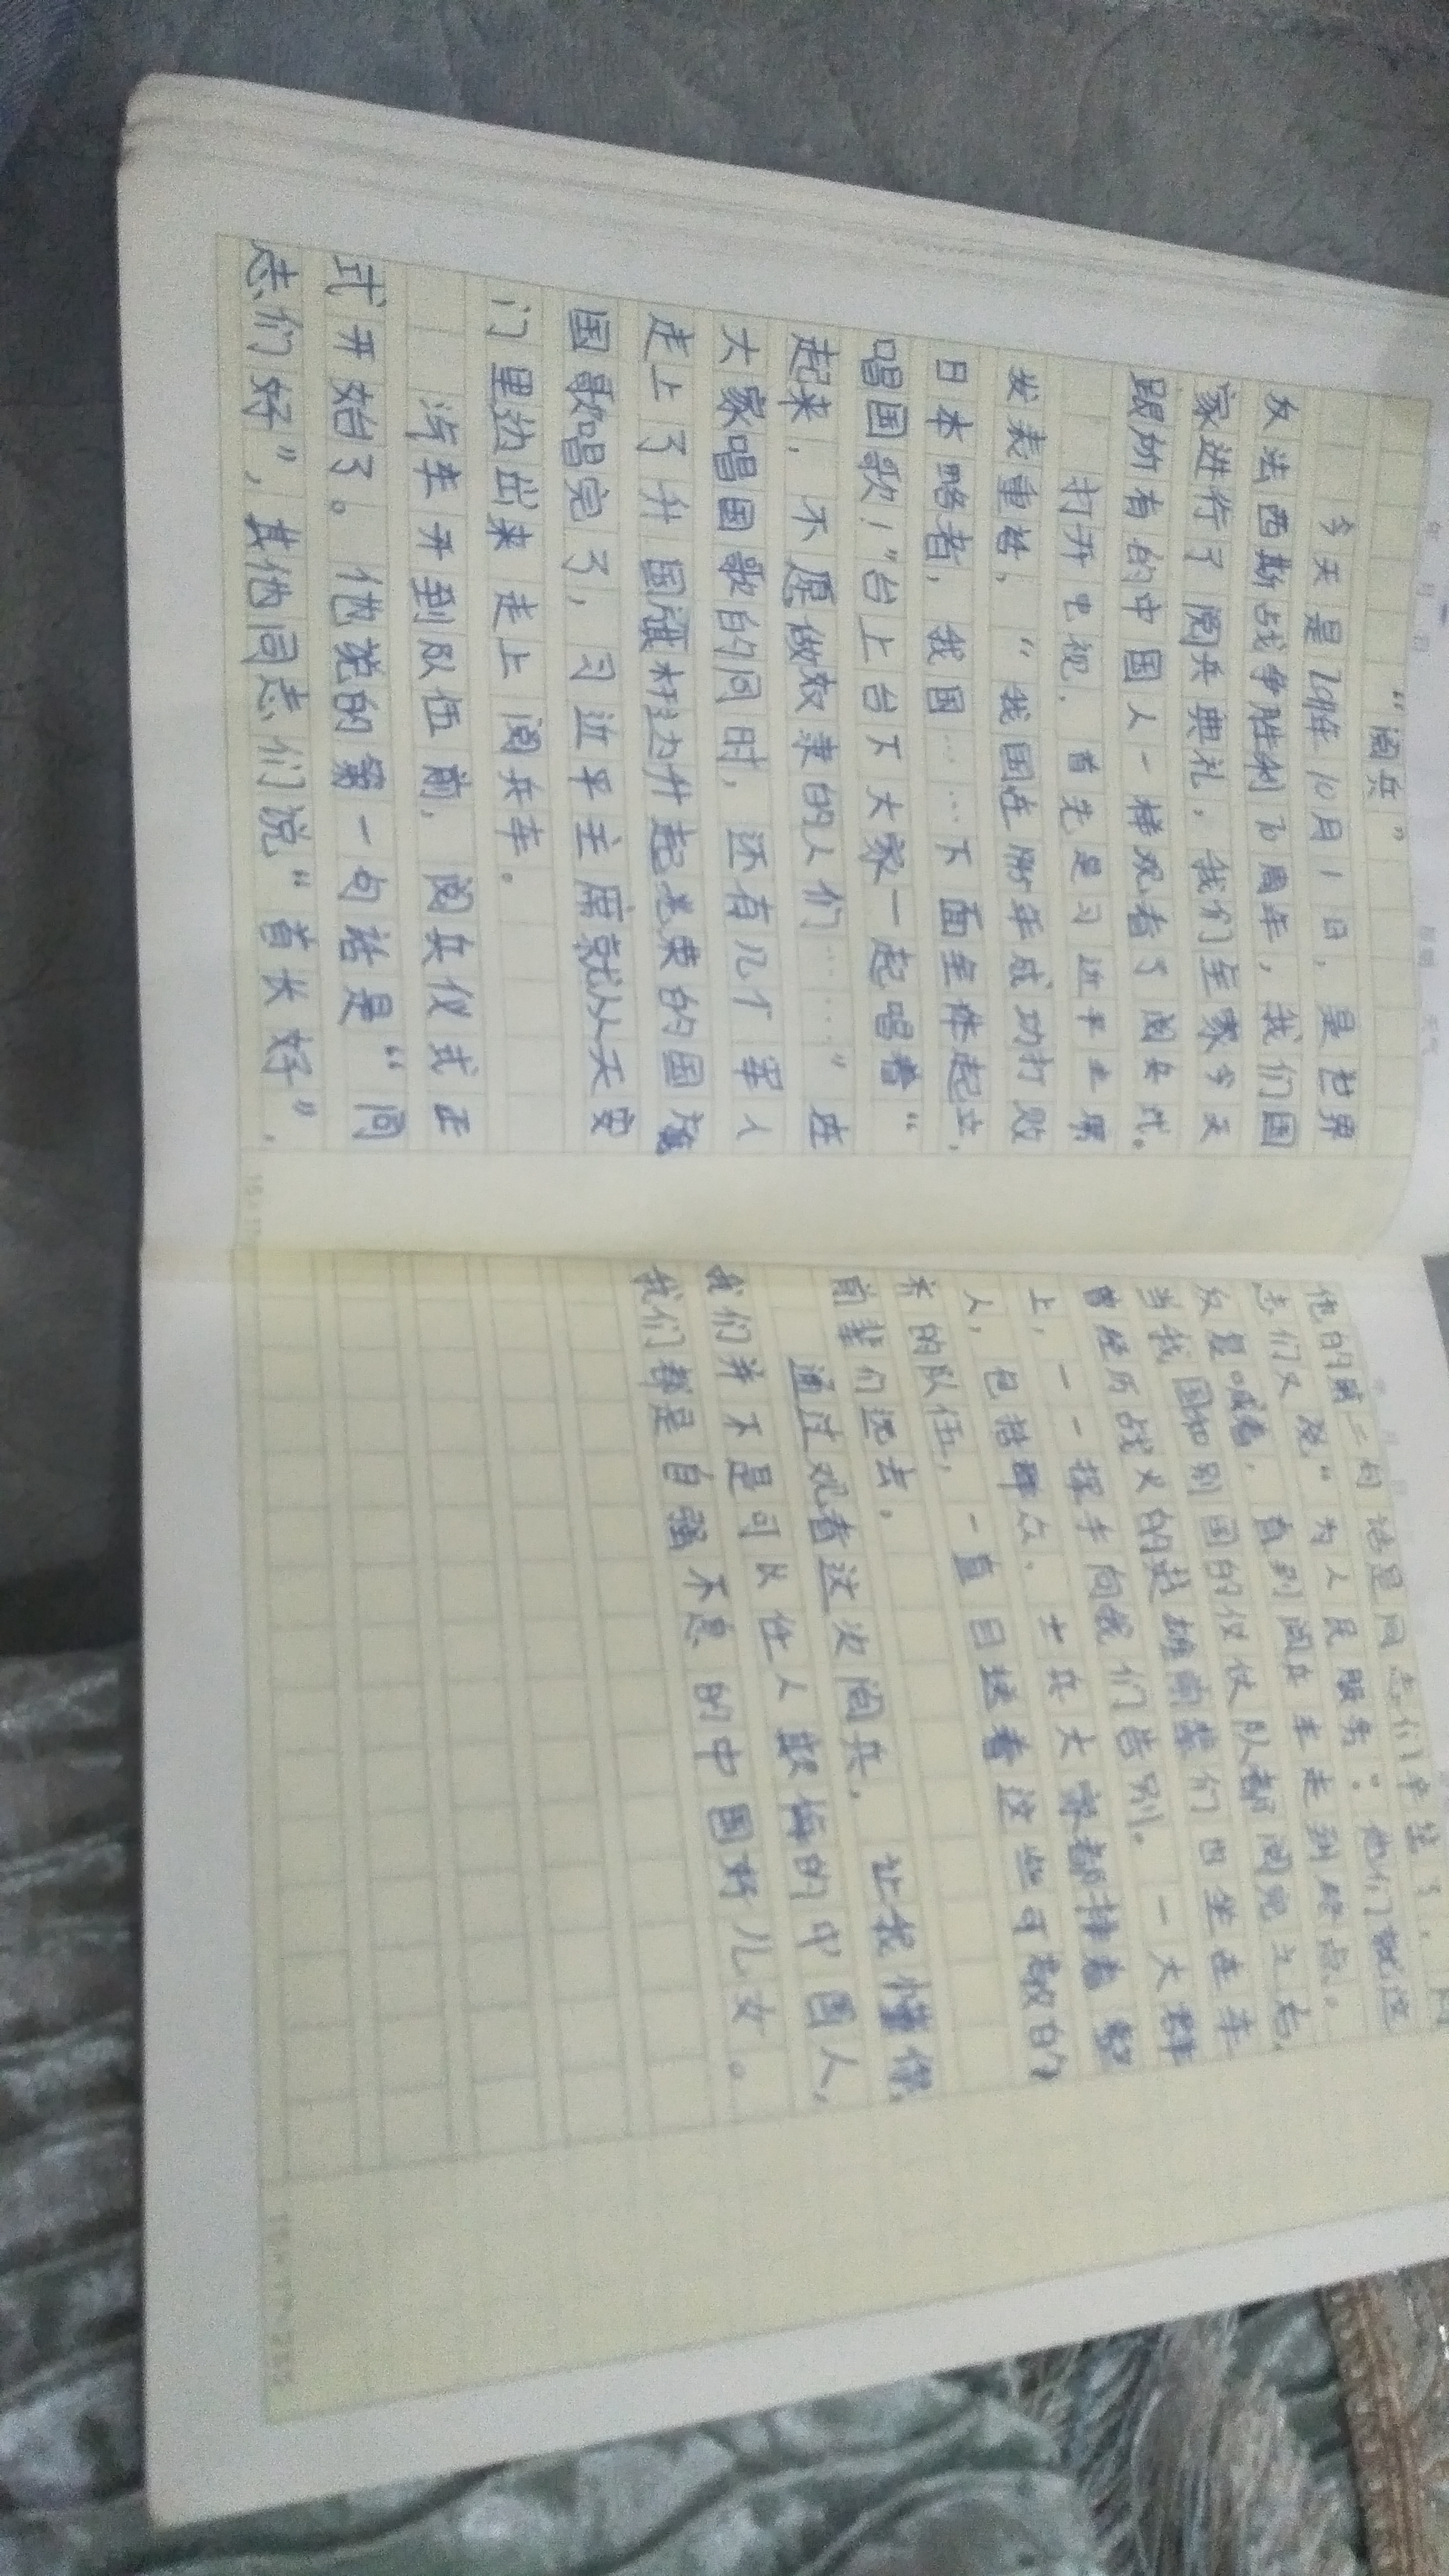 “阅兵”
今天是 10月1日，是世界
反法西斯战争胜利70周年，我们国
家进行了阅兵典礼，我们全家今天
跟所有的中国人一样观看了阅兵式。
打开电视，首先是习近平主席
发表重 ，“我国在 年成功打败
日本略者，我国……下面全体起立，
唱国歌！”台上台下大家一起唱着“
起来，不愿做奴隶的人们……”在
大家唱国歌的同时，还有几个军人
走上了升国旗 边升起光荣的国旗
国歌唱完了，习近平主席就从天安
门里边出来走上阅兵车。
汽车开到队伍前，阅兵仪式正
式开始了。他说的第一句话是“同
志们好”，其他同志们说“首长好”，
他的第二句话是同志们辛苦了，同
志们又说“为人民服务”：他们就这
反复喊着，直到阅兵车走到终点。
当我国和别国的仪仗队都阅完之后，
曾经历战火的英雄前辈们也坐在车
上，一一挥手向我们告别。一大群
人，包括群众、士兵大家都排着整
齐的队伍，一直目送着这些可敬的
前辈们远去，
通过观看这次阅兵，让我懂得，
我们并不是可以任人欺侮的中国人，
我们都是自强不息的中国好儿女。